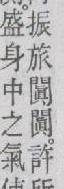 振旅闐闐。許所
盛身中之氣使